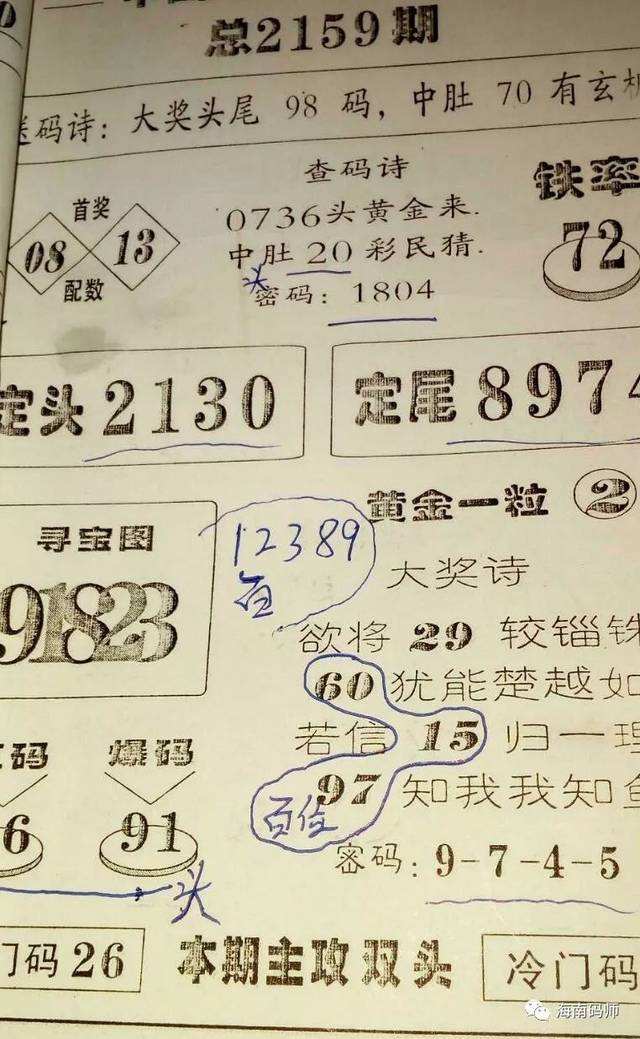 总2159期
送码诗：大奖头尾 98 码，中肚 70 有玄机
查码诗
铁率
首奖
0736头黄金来.
72
08 13
中肚 20 彩民猜.
配数
头
密码：1804
定头 2130
定尾 8974
黄金一粒 2
寻宝图
12389
百
大奖诗
91823
欲将 29 较锱铢
60 犹能楚越如
码 爆码
若信 15 归一理
6 91
97 知我我知鱼
百位
密码：9-7-4-5
头
门码 26
本期主攻双头
冷门码
海南码师